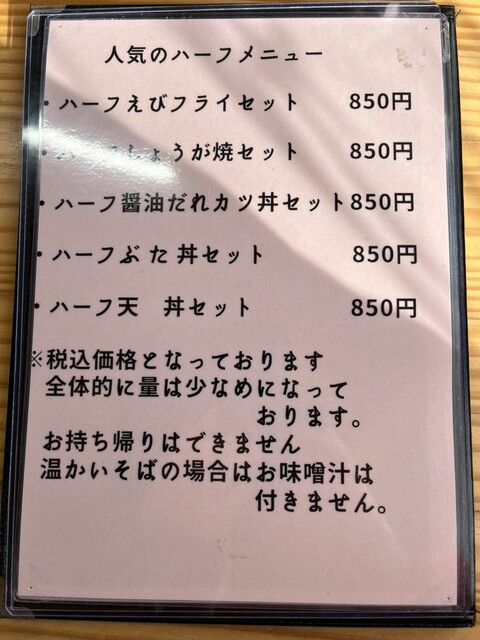 人気のハーフメニュー
・ハーフえびフライセット 850円
・ハーフしょうが焼セット 850円
・ハーフ醤油だれカツ丼セット850円
・ハーフぶた丼セット 850円
・ハーフ天 丼セット 850円
※税込価格となっております
全体的に量は少なめになって
おります。
お持ち帰りはできません
温かいそばの場合はお味噌汁は
付きません。